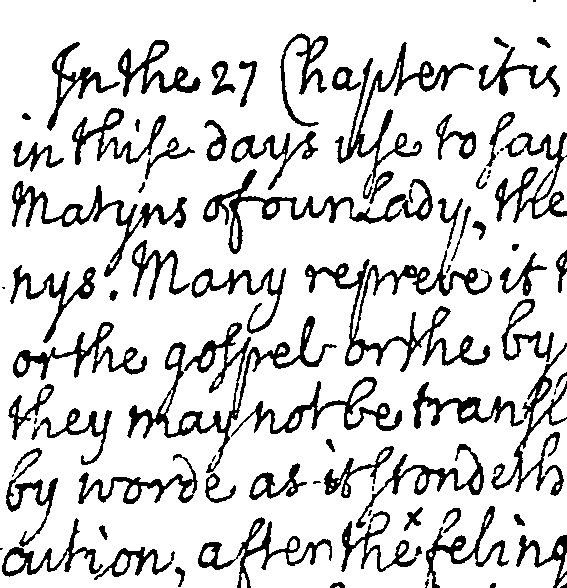 In the 27 Chapter it is
in thise days use to say
Matyns of oun Lady, the
nys. Many repreve it t
or the gospel or the by
they may not be transl
by worde as it stondeth
aution, after the feling